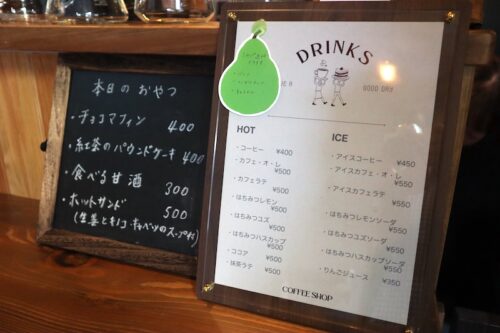 本日のおやつ
・チョコマフィン 400
・紅茶のパウンドケーキ 400
・食べる甘酒 300
・ホットサンド 500
(生姜とキノコ・キャベツのスープ付)
DRINKS
GOOD DAY
HOT
・コーヒー ¥400
・カフェ・オ・レ ¥500
・カフェラテ ¥500
・はちみつレモン ¥500
・はちみつユズ ¥500
・はちみつハスカップ ¥500
・ココア ¥500
・抹茶ラテ ¥500
ICE
・アイスコーヒー ¥450
・アイスカフェ・オ・レ ¥550
・アイスカフェラテ ¥550
・はちみつレモンソーダ ¥550
・はちみつユズソーダ ¥550
・はちみつハスカップソーダ ¥550
・りんごジュース ¥350
COFFEE SHOP